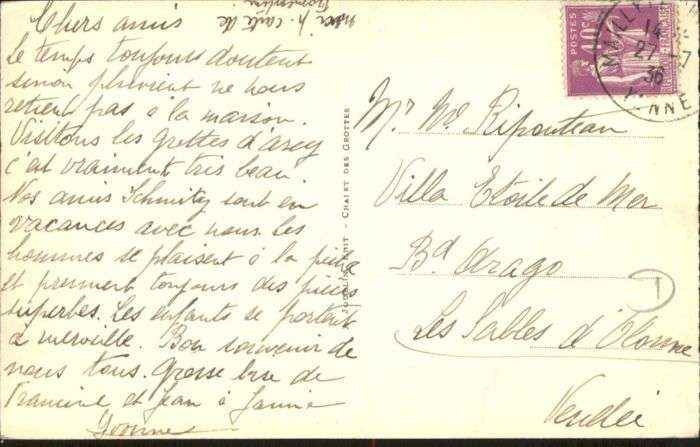 Chers amis
merci p. carte de
Le temps toujours doutent
sinon pluvieux ne nous
retient pas à la maison.
Visitons les grottes d'arcy
c'est vraiment très beau.
Nos amis Schmitz sont en
vacances avec nous les
hommes se plaisent à la pêche
et prennent toujours des pièces
superbes. Les enfants se portent
à merveille. Bon souvenir de
nous tous. Grosse bise de
Francine et Jean à Janine
Yvonne
CHALET DES GROTTES
POSTES
40c
MAILLY
14
27-7
36
YONNE
Mr Me Ripouteau
Villa Etoile de Mer
Bd Arago
Les Sables d'Olonne
Vendée